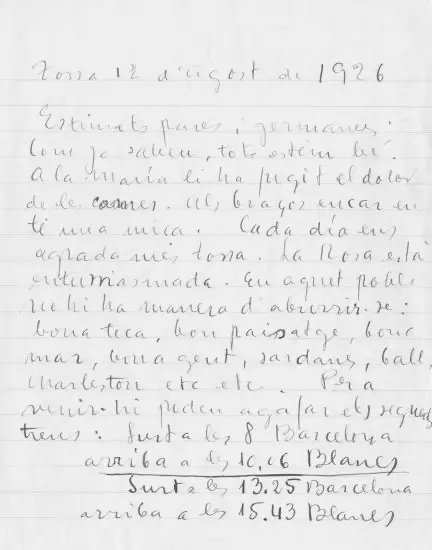 Tossa 12 d'agost de 1926
Estimats pares i germanes:
Com ja sabeu, tots estém bé.
A la maría li ha fugit el dolor
de le cames. Als braços encar en
té una mica. Cada día ens
agrada més Tossa. La Rosa está
entussiasmada. En aquet poble
no hi ha manera d'aburrir-se:
bona teca, bon paisatge, bona
mar, bona gent, sardanes, ball,
charleston etc etc. Per a
venir-hi poden agafar els seguents
trens: Surt a les 8 Barcelona
arriba a les 10,16 Blanes
Surt a les 13.25 Barcelona
arriba a les 15.43 Blanes